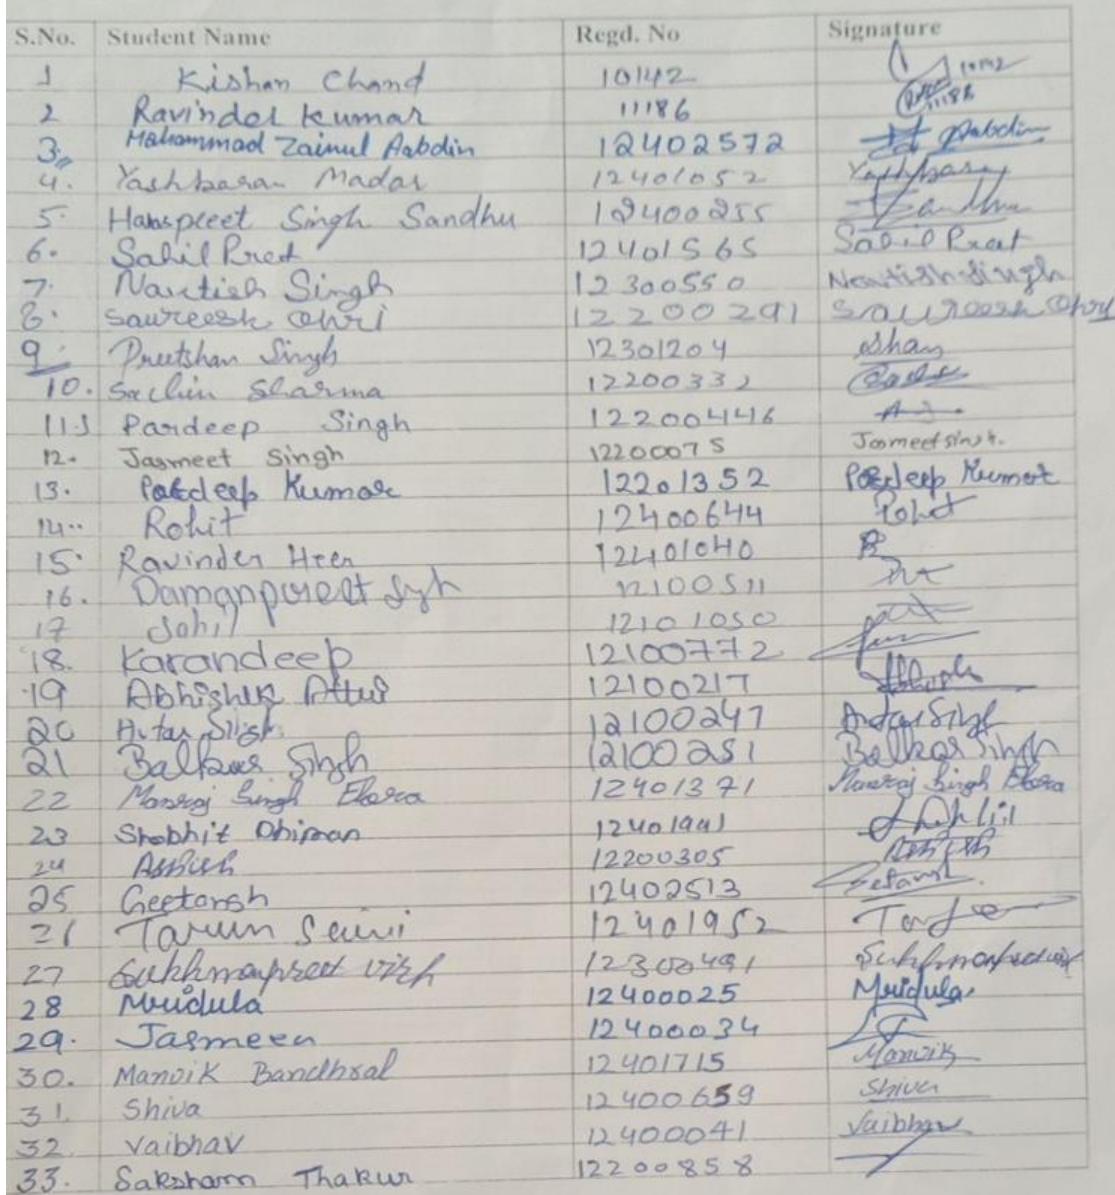 S.No. Student Name Regd. No Signature
1 Kishan Chand 10142 10142
2 Ravinder Kumar 11186 11186
3 Mohammad Zainul Aabdin 12402572 Aabdin
4. Yashbaran Madar 12401052
5. Harspreet Singh Sandhu 12400255 Sandhu
6. Sahil Preet 12401565 Sahil Preet
7. Navtish Singh 12300550 Navtish Singh
8. Saureesh Ohri 12200291 Saureesh Ohri
9. Preetshan Singh 12301204 Shan
10. Sachin Sharma 1220033
11. Pardeep Singh 122004446
12. Jasmeet Singh 12200075 Jasmeet Singh.
13. Pardeep Kumar 12201352 Pardeep Kumar
14.. Rohit 12400644 Rohit
15. Ravinder Heer 12401040
16. Damanpreet Singh 12100511
17 Sahil 12101050
18. Karandeep 12100772
19 Abhishek Attui 12100217
20 Avtar Singh 12100247 Avtar Singh
21 Balkar Singh 12100251 Balkar Singh
22 Manraj Singh 12401371 Manraj Singh
23 Shobhit Dhiman 12401941
24 Ashish 12200305 Ashish
25 Geetansh 12402513
21 Tarun Saini 12401952
27 Sukhmanpreet Virk 12300491 Sukhmanpreet Virk
28 Mridula 12400025 Mridula
29. Jasmeen 12400034
30. Manvik Bandhral 12401715 Manvik
31. Shiva 12400659 Shiva
32 Vaibhav 12400041 Vaibhav
33. Saksham Thakur 12200858